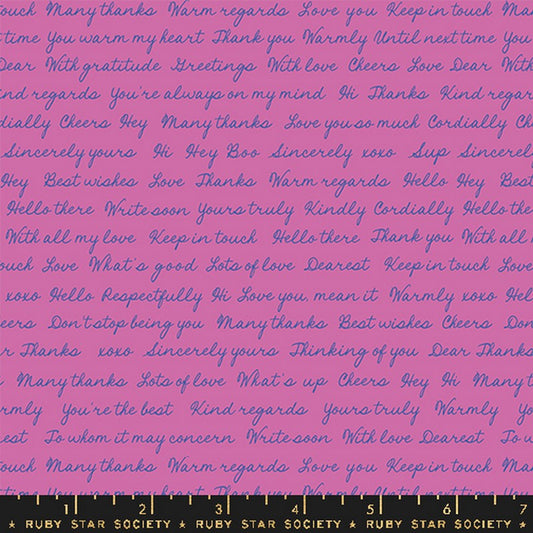 ouch Many thanks Warm regards Love you Keep in touch Many than
t time You warm my heart Thank you Warmly Until next time You
Dear With gratitude Greetings With love Cheers Love Dear With
ind regards You're always on my mind Hi Thanks Kind regar
dially Cheers Hey Many thanks Love you so much Cordially Ch
Sincerely yours Hi Hey Boo Sincerely xoxo Sup Sincerel
Hey Best wishes Love Thanks Warm regards Hello Hey Best
Hello there Write soon Yours truly Kindly Cordially Hello the
With all my love Keep in touch Hello there Thank you With all
ouch Love What's good Lots of love Dearest Keep in touch Love
xoxo Hello Respectfully Hi Love you, mean it Warmly xoxo Hel
eers Don't stop being you Many thanks Best wishes Cheers Don
r Thanks xoxo Sincerely yours Thinking of you Dear Thanks
Many thanks Lots of love What's up Cheers Hey Hi Many t
rmly You're the best Kind regards Yours truly Warmly Yo
est To whom it may concern Write soon With love Dearest To w
ouch Many thanks Warm regards Love you Keep in touch Man
t time You warm my heart Thank you Warmly Until next time You
1 2 3 4 5 6 7
RUBY STAR SOCIETY RUBY STAR SOCIETY RUBY STAR SOCIETY